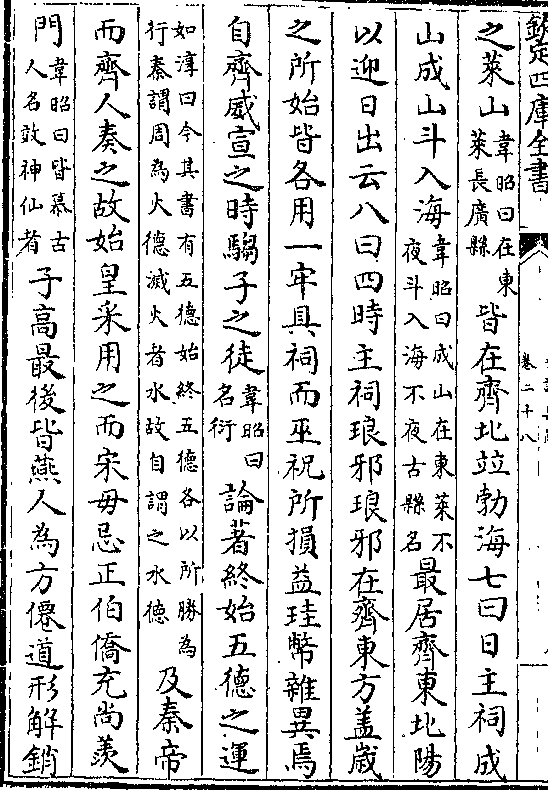 欽定四庫全書
卷二十八
之萊山韋昭曰在東萊長廣縣皆在齊北竝勃海七曰日主祠成
山成山斗入海韋昭曰成山在東萊不夜斗入海不夜古縣名最居齊東北陽
以迎日出云八曰四時主祠琅邪琅邪在齊東方盖嵗
之所始皆各用一牢具祠而巫祝所損益珪幣雜異焉
自齊威宣之時騶子之徒韋昭曰名衍論著終始五德之運
如淳曰今其書有五德始終五德各以所勝為行秦謂周為火德滅火者水故自謂之水德及秦帝
而齊人奏之故始皇采用之而宋毋忌正伯僑充尚羨
門韋昭曰皆慕古人名效神仙者子高最後皆燕人為方僊道形解銷